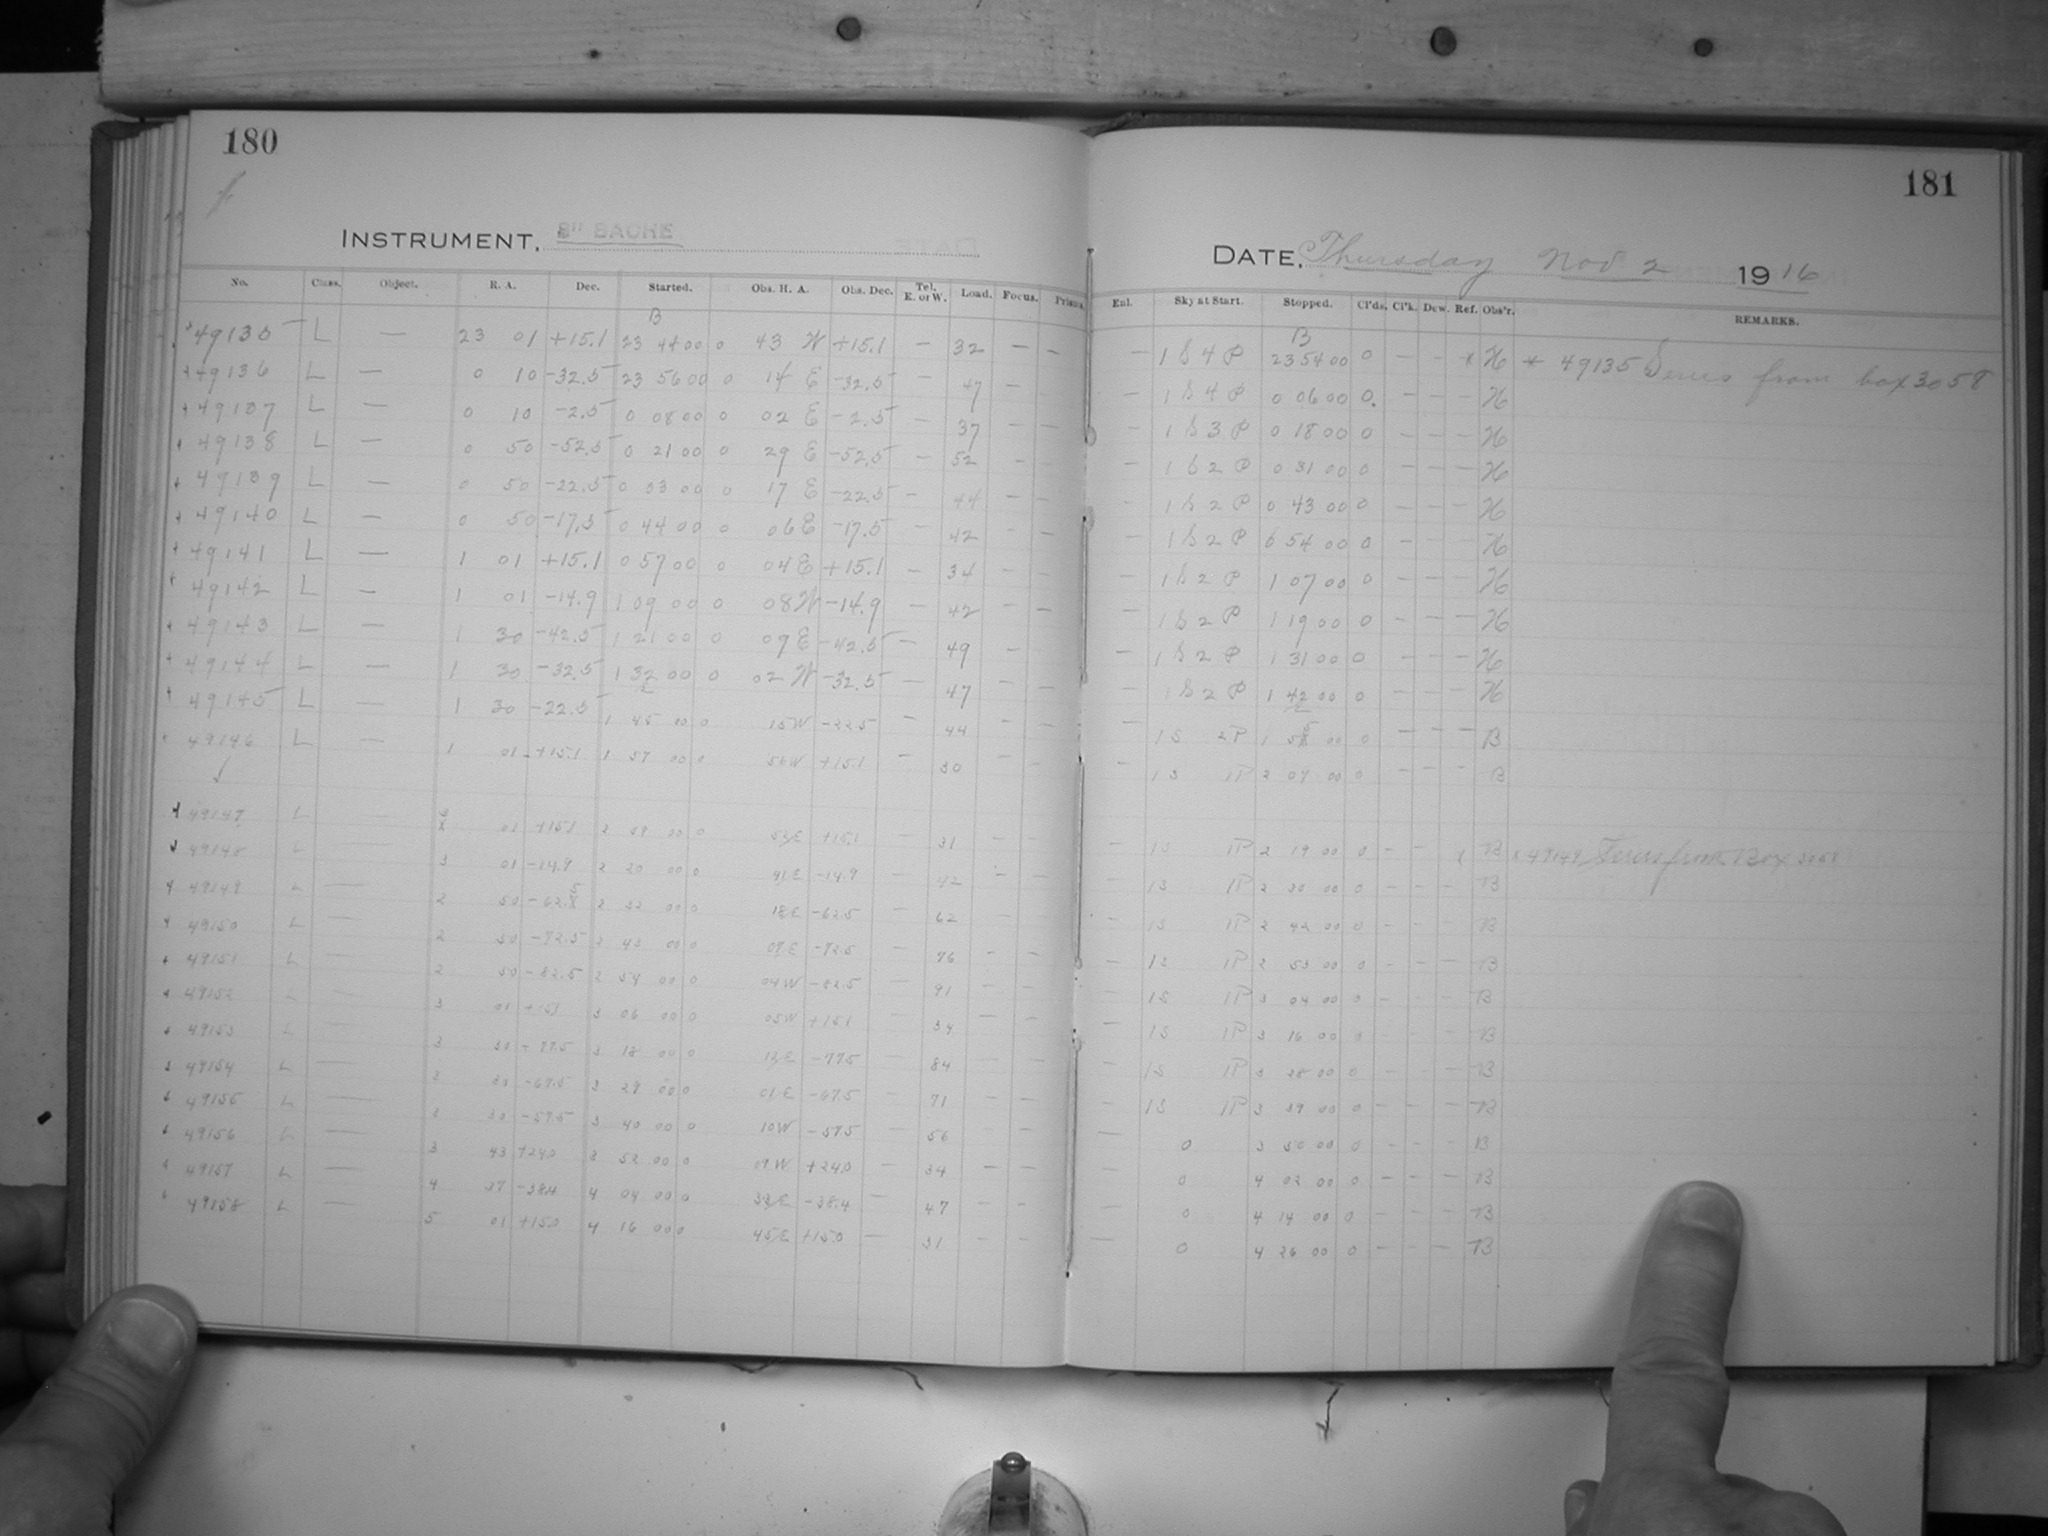 180
181
INSTRUMENT, 8" BACHE
DATE, Thursday Nov 2 1916
No. Class. Object. R. A. Dec. Started. Obs. H. A. Obs. Dec. Tel. E. or W. Load. Focus. Prisms. Enl. Sky at Start. Stopped. Cl'ds. Cl'k. Dew. Ref. Obs'r. REMARKS.
B B
49135 L — 23 01 +15.1 23 44 00 0 43 W +15.1 — 32 — — — 1 S 4 P 23 54 00 0 — — * H * 49135 Series from box 3058
49136 L — 0 10 -32.5 23 56 00 0 14 E -32.5 — 47 — — 1 S 4 P 0 06 00 0. — — — H
49137 L — 0 10 -2.5 0 08 00 0 02 E -2.5 — 37 — — — 1 S 3 P 0 18 00 0 — — — H
49138 L — 0 50 -52.5 0 21 00 0 29 E -52.5 — 52 — — 1 S 2 P 0 31 00 0 — — — H
49139 L — 0 50 -22.5 0 03 00 0 17 E -22.5 — 44 — — — 1 S 2 P 0 43 00 0 — — — H
49140 L — 0 50 -17.5 0 44 00 0 06 E -17.5 — 42 — — — 1 S 2 P 0 54 00 0 — — — H
49141 L — 1 01 +15.1 0 57 00 0 04 E +15.1 — 34 — — — 1 S 2 P 1 07 00 0 — — — H
49142 L — 1 01 -14.9 1 09 00 0 08 W -14.9 — 42 — — — 1 S 2 P 1 19 00 0 — — — H
49143 L — 1 30 -42.5 1 21 00 0 09 E -42.5 — 49 — — 1 S 2 P 1 31 00 0 — — — H
49144 L — 1 30 -32.5 1 32 00 0 02 W -32.5 — 47 — — — 1 S 2 P 1 42 00 0 — — — H
49145 L — 1 30 -22.5 1 45 00 0 15 W -22.5 — 44 — — — 1 S 2 P 1 55 00 0 — — — B
49146 L — 1 01 +15.1 1 57 00 0 56 W +15.1 — 30 — — — 1 S 1 P 2 07 00 0 — — — B
49147 L — 3 01 +15.1 2 09 00 0 52 E +15.1 — 31 — — — 1 S 1 P 2 19 00 0 — — B 49147 Series from Box 3058
49148 L — 3 01 -14.9 2 20 00 0 41 E -14.9 — 42 — — — 1 S 1 P 2 30 00 0 — — — B
49149 L — 2 50 -62.5 2 32 00 0 18 E -62.5 — 62 — — 1 S 1 P 2 42 00 0 — — — B
49150 L — 2 50 -72.5 2 43 00 0 07 E -72.5 — 76 — — — 1 S 1 P 2 53 00 0 — — — B
49151 L — 2 50 -82.5 2 54 00 0 04 W -82.5 — 91 — — — 1 S 1 P 3 04 00 0 — — — B
49152 L — 3 01 +15.1 3 06 00 0 05 W +15.1 — 34 — — — 1 S 1 P 3 16 00 0 — — — B
49153 L — 3 30 -77.5 3 18 00 0 12 E -77.5 — 84 — — — 1 S 1 P 3 28 00 0 — — — B
49154 L — 3 30 -67.5 3 29 00 0 01 E -67.5 — 71 — — — 1 S 1 P 3 39 00 0 — — — B
49155 L — 3 30 -57.5 3 40 00 0 10 W -57.5 — 56 — — — 0 3 50 00 0 — — — B
49156 L — 3 43 +24.0 3 52 00 0 09 W +24.0 — 34 — — — 0 4 02 00 0 — — — B
49157 L — 4 37 -38.4 4 04 00 0 33 E -38.4 — 47 — — — 0 4 14 00 0 — — — B
49158 L — 5 01 +15.0 4 16 00 0 45 E +15.0 — 31 — — — 0 4 26 00 0 — — — B